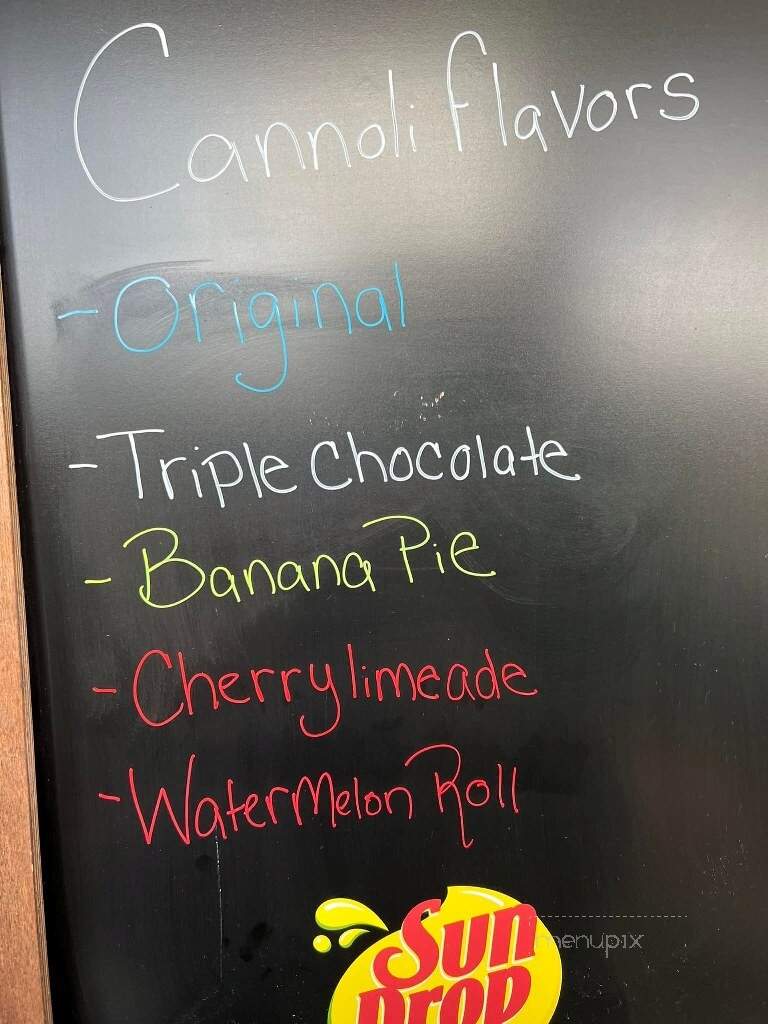 Cannoli flavors
- Original
- Triple Chocolate
- Banana Pie
- Cherry limeade
- Watermelon Roll
Sun
Drop
menupix